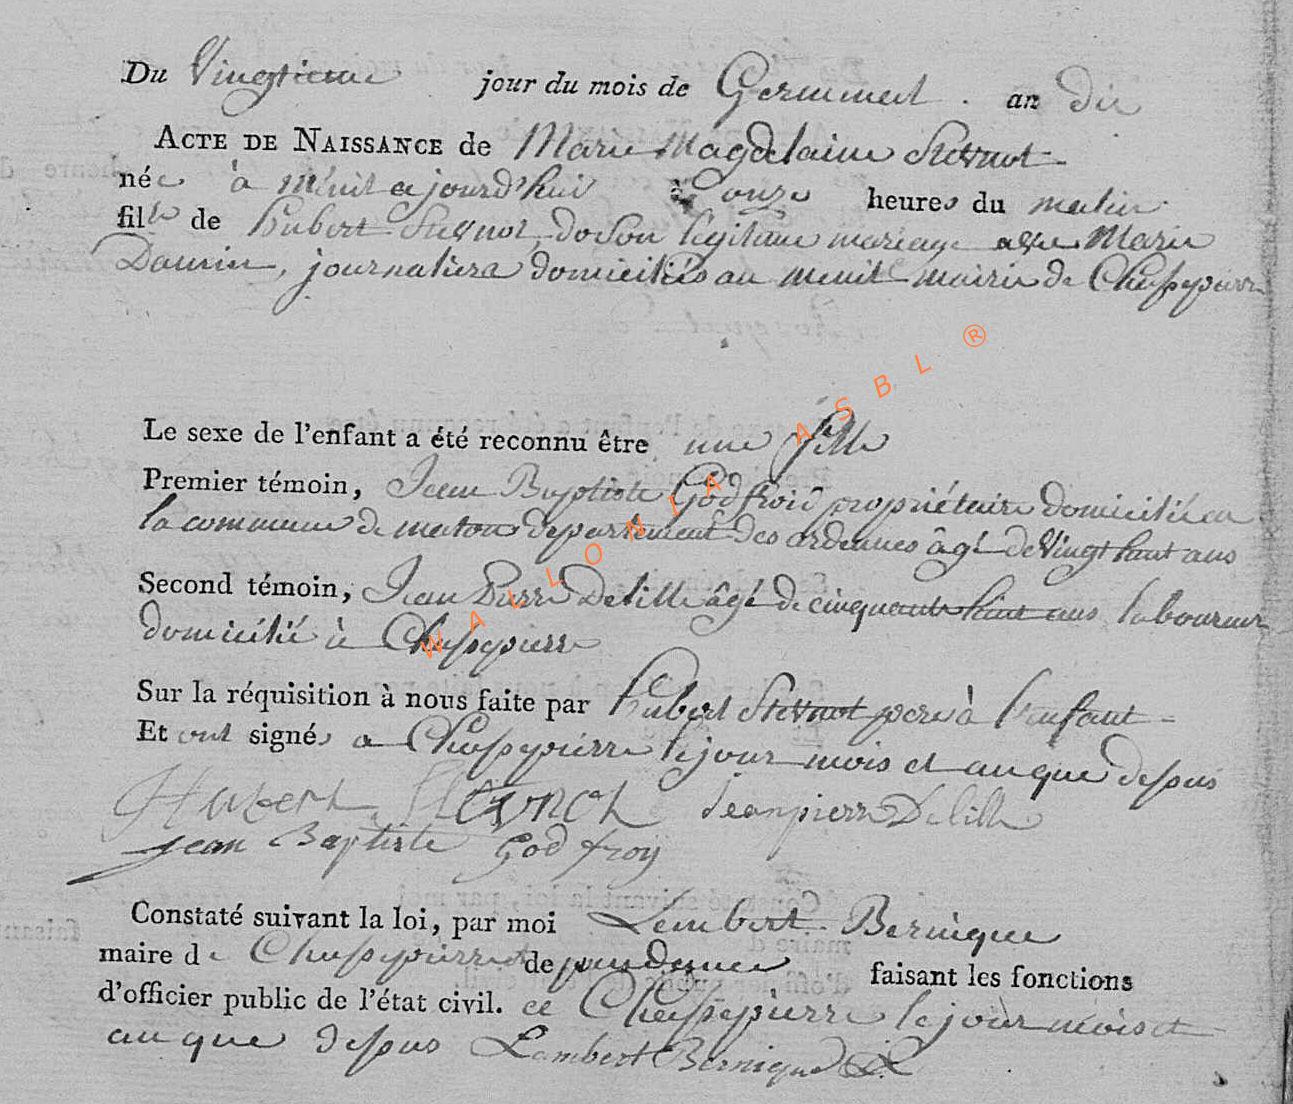 Du Vingtieme jour du mois de Germinal . an dix
ACTE DE NAISSANCE de Marie Magdelaine Stevnot
née à ménil ce jourd'hui à onze heures du matin
fille de hubert Stevnot, de Son légitime mariage avec Marie
Daurin, journaliers domiciliés au menil mairie de Chassepierre
Le sexe de l'enfant a été reconnu être une fille
Premier témoin, Jean Baptiste Godfroid propriétaire domicilié en
la commune de maton departement des ardennes âgé de Vingt huit ans
Second témoin, Jean Pierre Delille âgé de cinquante huit ans laboureur
domicilié à Chassepierre
Sur la réquisition à nous faite par hubert Stevnot pere à l'enfant
Et ont signés a Chassepierre le jour mois et an que dessus
Hubert Stevnot Jeanpierre Delille
jean Baptiste Godfroy
Constaté suivant la loi, par moi Lembert Bernique
maire de Chassepierre et dependance faisant les fonctions
d'officier public de l'état civil. ce Chassepierre le jour mois et
an que dessus Lambert Bernique
WALLONIA ASBL ®